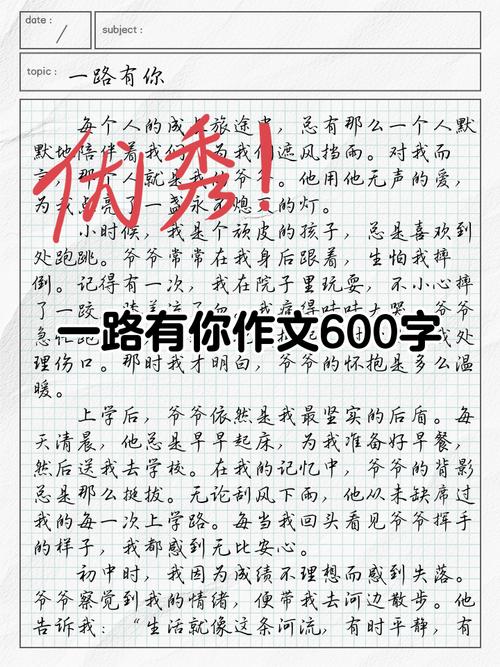 date :
subject :
topic : 一路有你
每个人的成长旅途中，总有那么一个人默
默地陪伴着我们，为我们遮风挡雨。对我而
言，那个人就是我的爷爷。他用他无声的爱，
为我点亮了一盏永不熄灭的灯。
优秀！
小时候，我是个顽皮的孩子，总是喜欢到
处跑跳。爷爷常常在我身后跟着，生怕我摔
倒。记得有一次，我在院子里玩耍，不小心摔
了一跤，膝盖流了血，我疼得哇哇大哭。爷爷
一路有你作文600字
急忙跑
处
理伤口。那时我才明白，爷爷的怀抱是多么温
暖。
上学后，爷爷依然是我最坚实的后盾。每
天清晨，他总是早早起床，为我准备好早餐，
然后送我去学校。在我的记忆中，爷爷的背影
总是那么挺拔。无论刮风下雨，他从未缺席过
我的每一次上学路。每当我回头看见爷爷挥手
的样子，我都感到无比安心。
初中时，我因为成绩不理想而感到失落。
爷爷察觉到我的情绪，便带我去河边散步。他
告诉我：“生活就像这条河流，有时平静，有